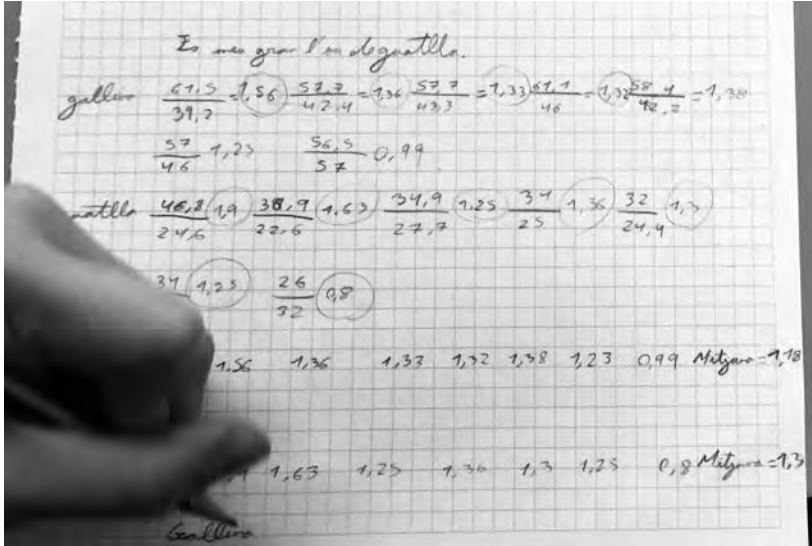 Es mes gran l'ou de guatlla.
gallina 61,5/39,2 = 1,56 57,7/42,4 = 1,36 57,7/43,3 = 1,33 61,1/46 = 1,32 58,4/42,2 = 1,38
57/46 1,23 56,5/57 0,99
uatlla 46,8/24,6 1,9 36,9/22,6 1,63 34,9/27,7 1,25 34/25 1,36 32/24,4 1,3
34 1,25 26/32 0,8
1,56 1,36 1,33 1,32 1,38 1,23 0,99 Mitjana = 1,18
1,63 1,25 1,36 1,3 1,25 0,8 Mitjana = 1,3
Gallina